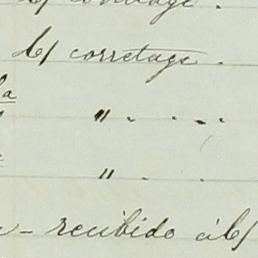 b/ corretage.
b/ corretage.
a
" " . .
" . .
- recibido á b/